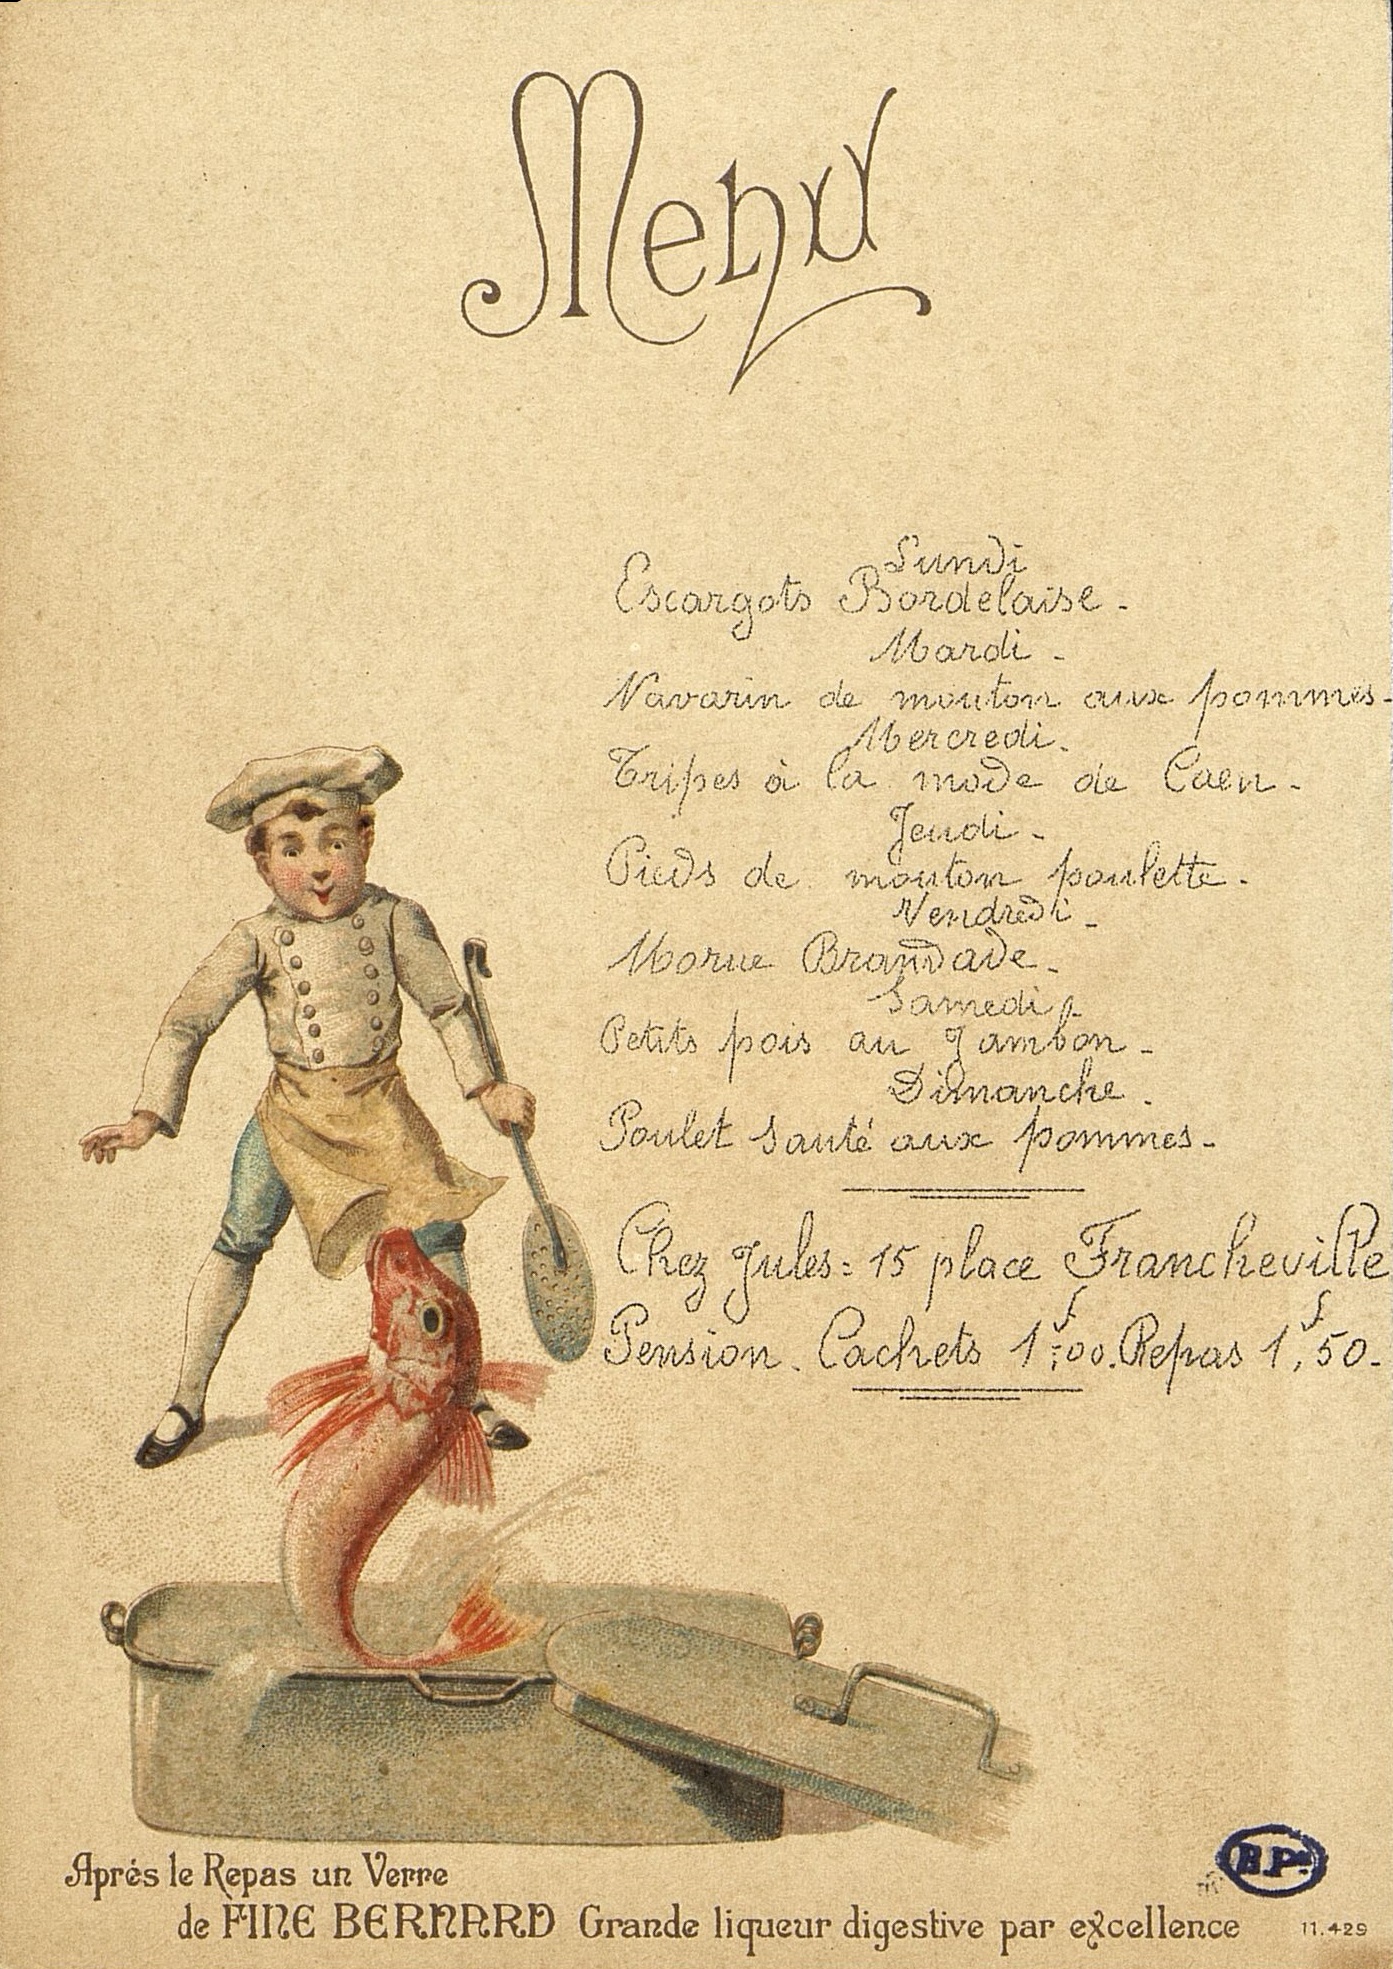 Menu
Lundi
Escargots Bordelaise -
Mardi -
Navarin de mouton aux pommes -
Mercredi.
Tripes à la mode de Caen -
Jeudi -
Pieds de mouton poulette -
Vendredi -
Morue Brandade -
Samedi -
Petits pois au Jambon -
Dimanche.
Poulet sauté aux pommes -
Chez Jules = 15 place Francheville
Pension. Cachets 1f,00. Repas 1f,50 -
Aprés le Repas un Verre
de FINE BERNARD Grande liqueur digestive par excellence
11.429